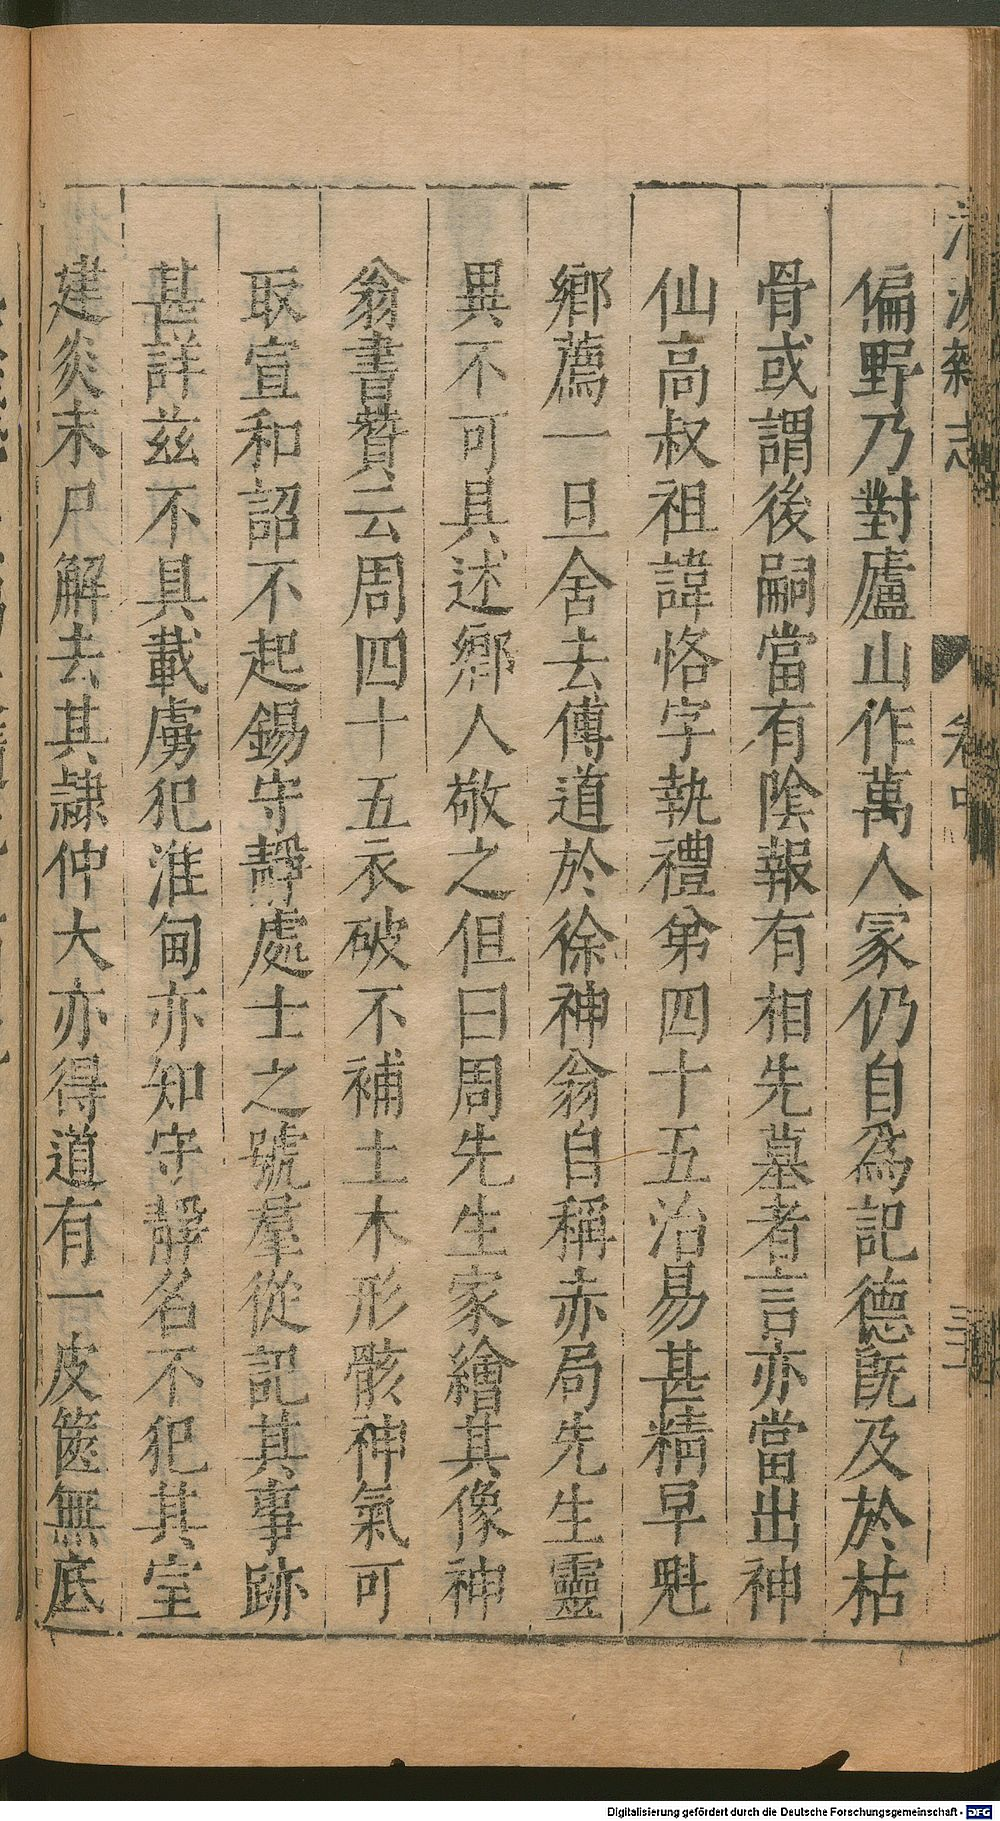 偏野乃對廬山作萬人冢仍自爲記德旣及於枯
骨或謂後嗣當有陰報有相先墓者言亦當出神
仙高叔祖諱恪字執禮弟四十五治易甚精早魁
鄉薦一旦舍去傳道於徐神翁自稱赤局先生靈
異不可具述鄉人敬之但曰周先生家繪其像神
翁書贊云周四十五衣破不補土木形骸神氣可
取宣和詔不起錫守靜處士之號羣從記其事跡
甚詳兹不具載虜犯淮甸亦知守靜名不犯其室
建炎末尸解去其隷仲大亦得道有一皮篋無底
Digitalisierung gefördert durch die Deutsche Forschungsgemeinschaft - DFG